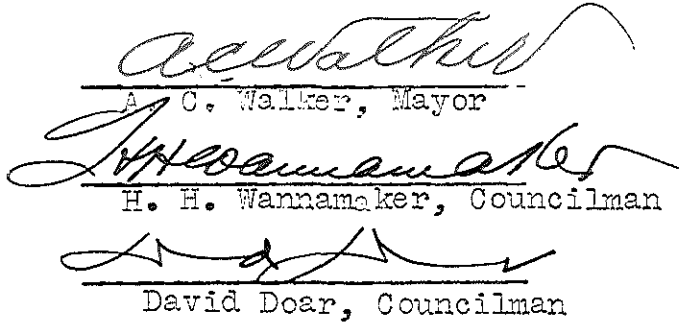 A C Walker
A. C. Walker, Mayor
H H Wannamaker
H. H. Wannamaker, Councilman
David Doar, Councilman